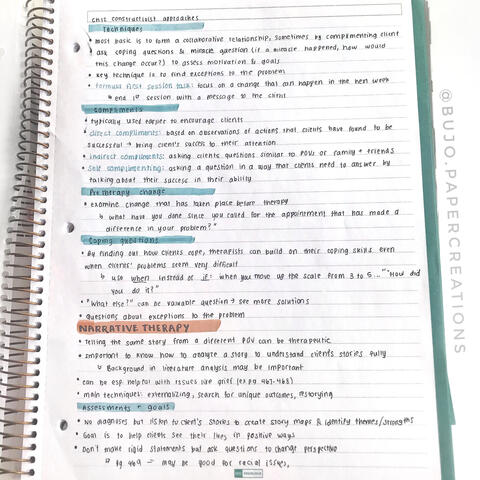 ch12 constructivist approaches
Techniques
• most basic is to form a collaborative relationship, sometimes by complimenting client
• ask coping questions & miracle question (if a miracle happened, how would
this change occur?) to assess motivation & goals
• key technique is to find exceptions to the problem
• formula first session task: focus on a change that can happen in the next week
↳ end 1st session with a message to the client
Compliments
• typically used to encourage clients
• direct compliments: based on observations of actions that clients have found to be
successful → bring client's success to their attention
• indirect compliments: asking clients questions similar to POVs of family + friends
• self complimenting: asking a question in a way that clients need to answer by
talking about their success in their ability
Pretherapy change
• examine change that has taken place before therapy
↳ what have you done since you called for the appointment that has made a
difference in your problem?"
Coping questions
• By finding out how clients cope, therapists can build on their coping skills even
when clients' problems seem very difficult
↳ use when instead of if: when you move up the scale from 3 to 5..." "How did
you do it?"
• "What else?" can be valuable question → see more solutions
• questions about exceptions to the problem
NARRATIVE THERAPY
• Telling the same story from a different POV can be therapeutic
• important to know how to analyze a story to understand client's stories fully
↳ Background in literature analysis may be important
• can be esp. helpful with issues like grief (ex pg. 467-468)
• main techniques: externalizing, search for unique outcomes, restorying
Assessments + goals
• No diagnoses but listen to client's stories to create story maps & identify themes/strengths
• Goal is to help clients see their lives in positive ways
• Don't make rigid statements but ask questions to change perspective
↳ Pg. 469 → may be good for racial issues,
@BUJO.PAPERCREATIONS